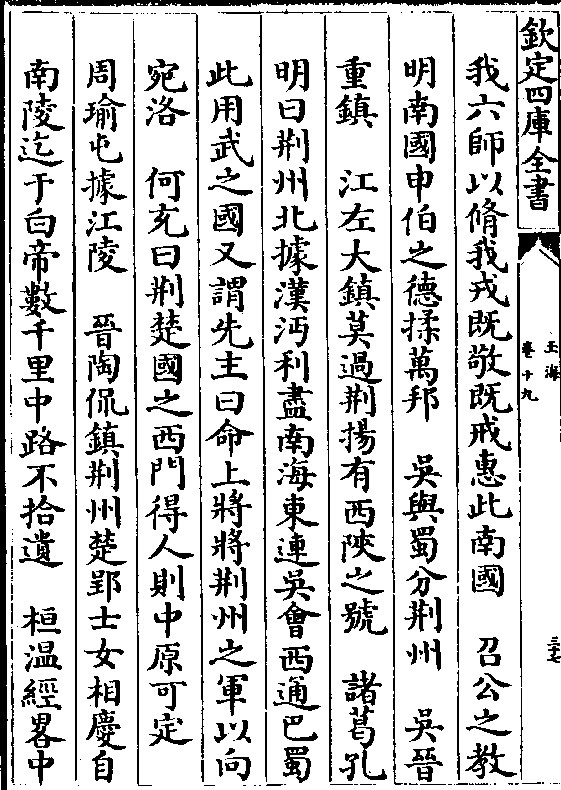 欽定四庫全書
玉海
卷十九
三十七
我六師以脩我戎既敬既戒惠此南國　召公之教
明南國申伯之德揉萬邦　吳與蜀分荆州　吳晉
重鎮　江左大鎮莫過荆揚有西陝之號　諸葛孔
明曰荆州北據漢沔利盡南海東連吳會西通巴蜀
此用武之國又謂先主曰命上將將荆州之軍以向
宛洛　何充曰荆楚國之西門得人則中原可定
周瑜屯據江陵　晉陶侃鎮荆州楚郢士女相慶自
南陵迄于白帝數千里中路不拾遺　桓温經畧中